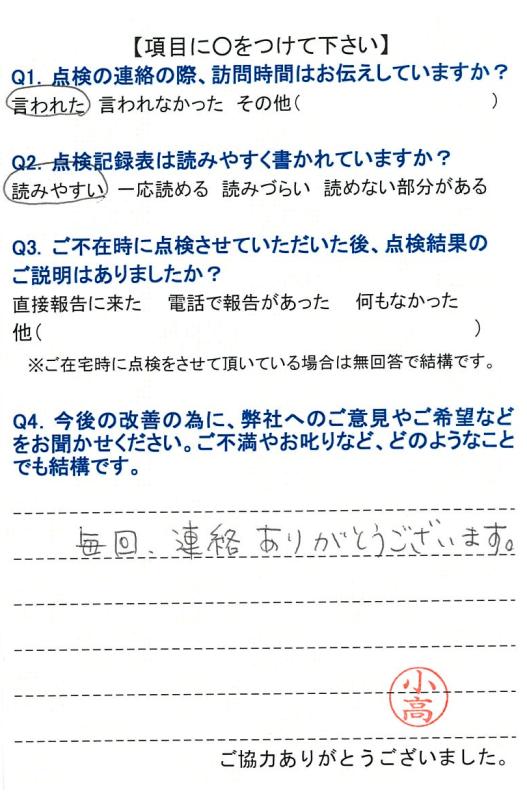 【項目に〇をつけて下さい】
Q1. 点検の連絡の際、訪問時間はお伝えしていますか？
言われた 言われなかった その他( )
Q2. 点検記録表は読みやすく書かれていますか？
読みやすい 一応読める 読みづらい 読めない部分がある
Q3. ご不在時に点検させていただいた後、点検結果の
ご説明はありましたか？
直接報告に来た 電話で報告があった 何もなかった
他( )
※ご在宅時に点検をさせて頂いている場合は無回答で結構です。
Q4. 今後の改善の為に、弊社へのご意見やご希望など
をお聞かせください。ご不満やお叱りなど、どのようなこと
でも結構です。
毎回、連絡ありがとうございます。
小高
ご協力ありがとうございました。